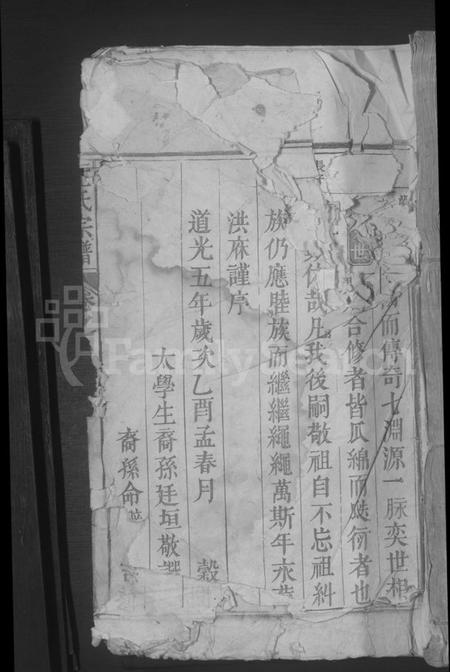 而傳奇七淵源一脉奕世相
合修者皆瓜綿而瓞衍者也
哉凡我後嗣敬祖自不忘祖糾
族仍應睦族而繼繼繩繩萬斯年永
洪庥謹序
道光五年歲次乙酉孟春月 穀
太學生裔孫廷垣敬
裔孫命
氏宗譜
FamilySearch